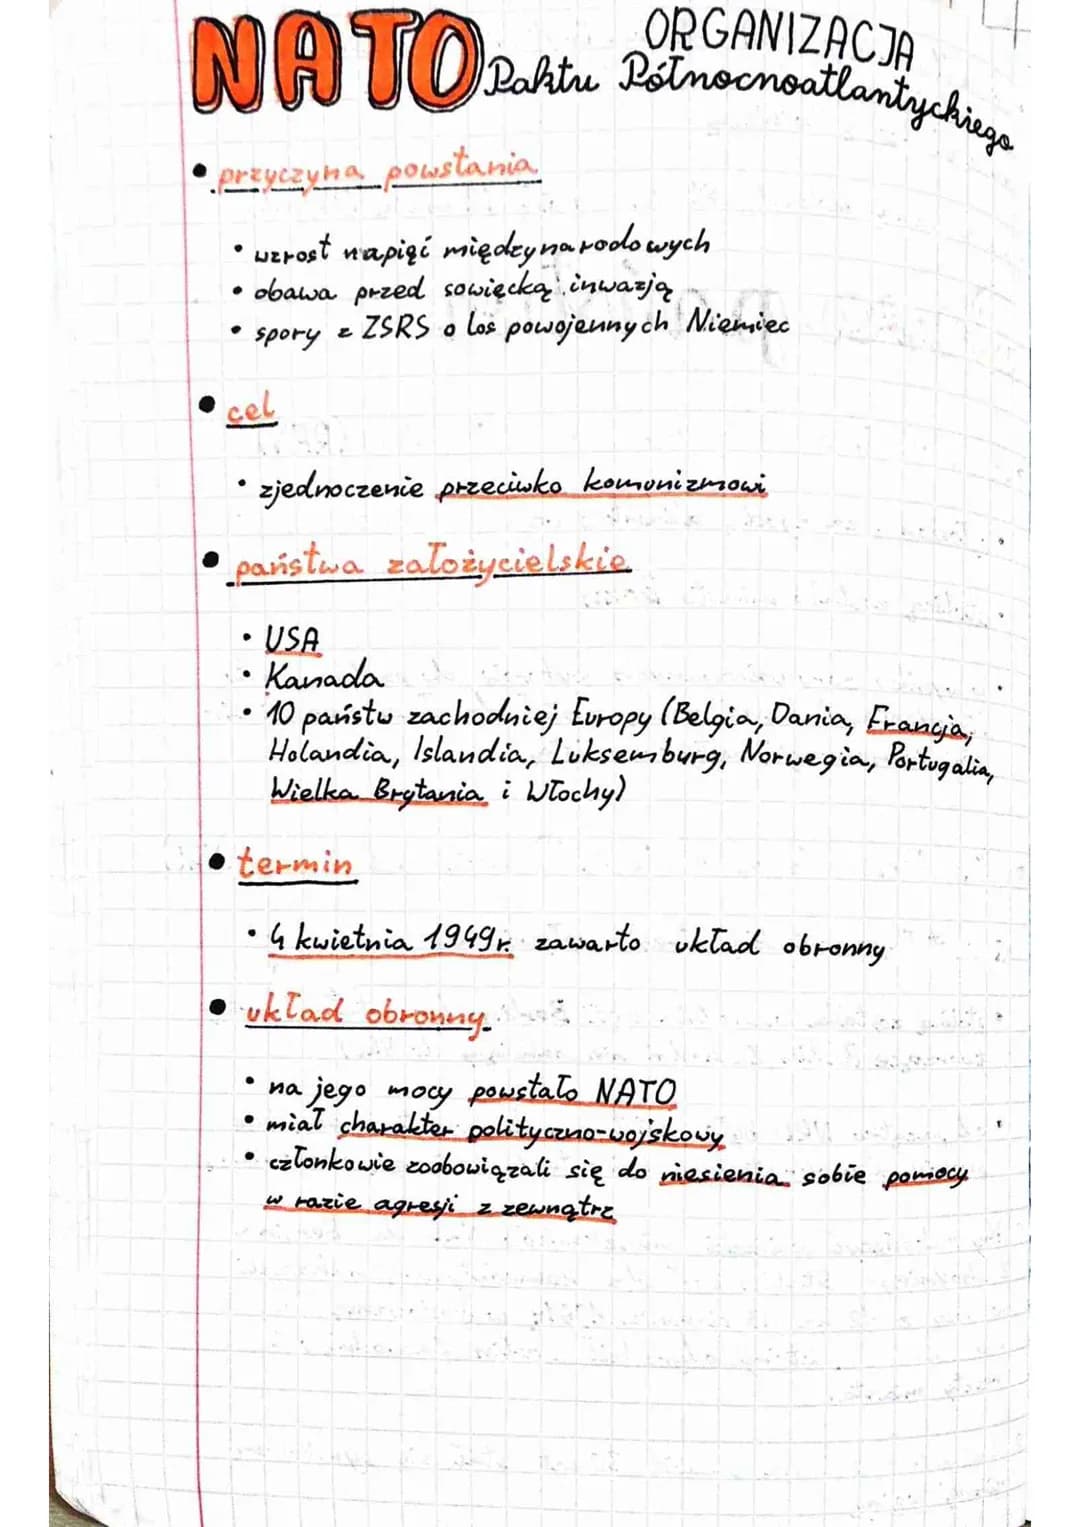 NATO ORGANIZACJA
Paktu Północnoatlantyckiego
• przyczyna powstania
• wzrost napięć międzynarodowych
• obawa przed sowiecką inwazją
• spory z ZSRS o los powojennych Niemiec
• cel
• zjednoczenie przeciwko komunizmowi
• państwa założycielskie
• USA
• Kanada
• 10 państw zachodniej Europy (Belgia, Dania, Francja,
Holandia, Islandia, Luksemburg, Norwegia, Portugalia,
Wielka Brytania i Włochy)
• termin
• 4 kwietnia 1949r. zawarto układ obronny
• układ obronny
• na jego mocy powstało NATO
• miał charakter polityczno-wojskowy
• członkowie zoobowiązali się do niesienia sobie pomocy
w razie agresji z zewnątrz